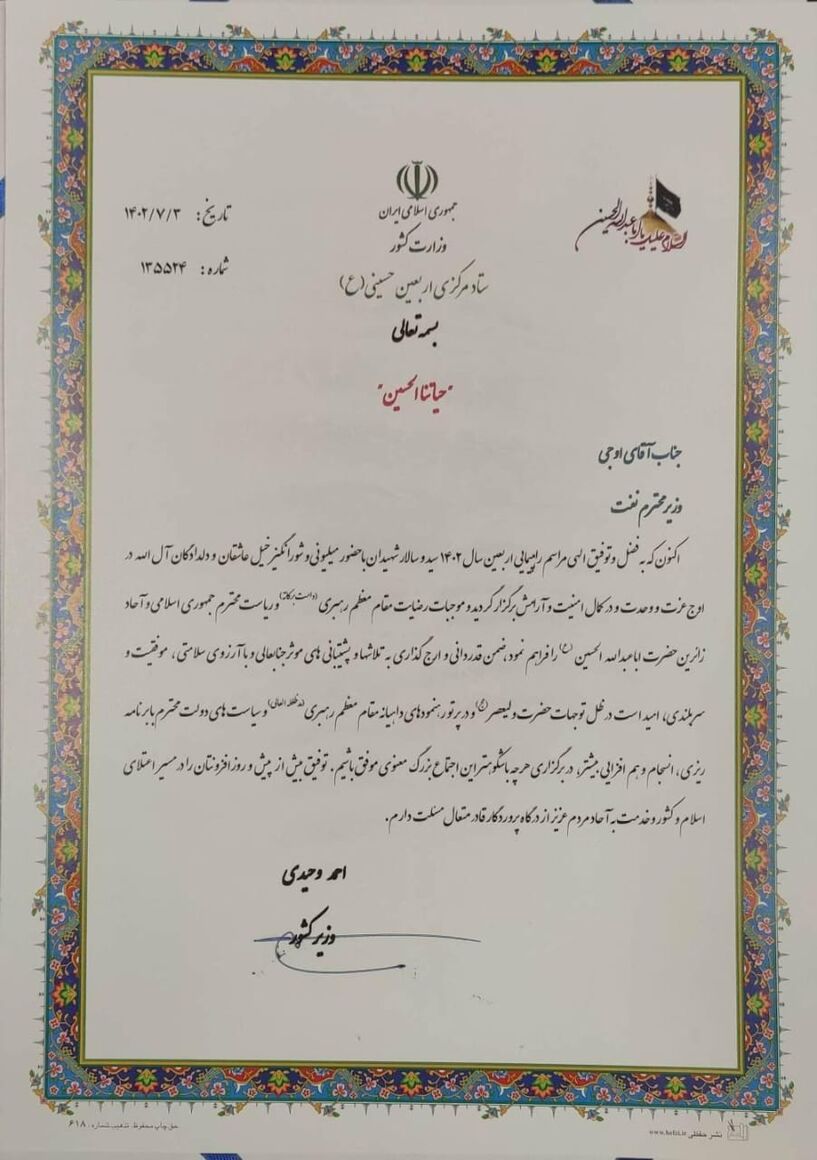 السلام علیک یا اباعبدالله الحسین
جمهوری اسلامی ایران
وزارت کشور
ستاد مرکزی اربعین حسینی(ع)
تاریخ: ۱۴۰۲/۷/۳
شماره: ۱۳۵۵۲۴
بسمه تعالی
"حیاتنا الحسین"
جناب آقای اوجی
وزیر محترم نفت
اکنون که به فضل و توفیق الهی مراسم راهپیمایی اربعین سال ۱۴۰۲ سید و سالار شهیدان با حضور میلیونی و شورانگیز خیل عاشقان و دلدادگان آل الله در
اوج عزت و وحدت و در کمال امنیت و آرامش برگزار گردید و موجبات رضایت مقام معظم رهبری (دامت برکاته) و ریاست محترم جمهوری اسلامی و آحاد
زائرین حضرت اباعبدالله الحسین (ع) را فراهم نمود، ضمن قدردانی و ارج گذاری به تلاشها و پشتیبانی های موثر جنابعالی و با آرزوی سلامتی، موفقیت و
سربلندی، امید است در ظل توجهات حضرت ولیعصر (عج) و در پرتو رهنمودهای داهیانه مقام معظم رهبری (مدظله العالی) و سیاست های دولت محترم با برنامه
ریزی، انسجام و هم افزایی بیشتر، در برگزاری هرچه باشکوهتر این اجتماع بزرگ معنوی موفق باشیم. توفیق بیش از پیش و روزافزونتان را در مسیر اعتلای
اسلام و کشور و خدمت به آحاد مردم عزیز از درگاه پروردگار قادر متعال مسئلت دارم.
احمد وحیدی
وزیر کشور
نشر حفظی www.hefzi.ir
حق چاپ محفوظ. تذهیب شماره: ۶۱۸